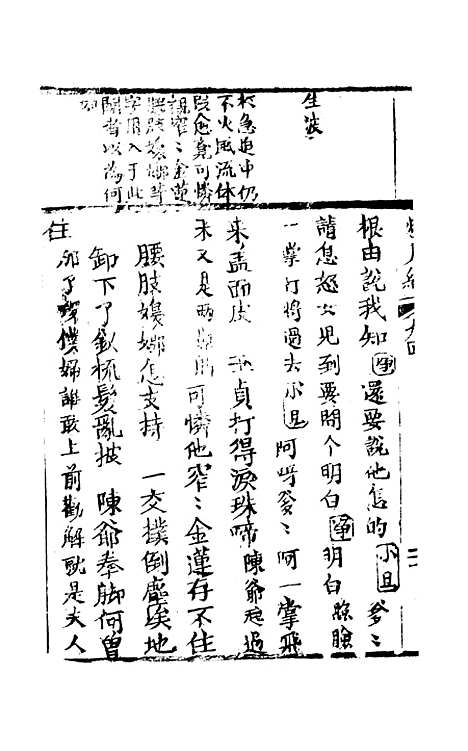 生波
於急迫中仍
不火風流体
段愈覚可憐
窄〻金蓮
腰肢嬝娜等
字用入于此
閱者以為何
如
根由說我知 淨 還要說他怎的 小旦 爹〻
請息怒女児到要問个明白 淨 明白
一掌打將過去 小旦 阿呀爹〻阿一掌飛
來盖面皮 貞打得淚珠啼 陳爺赶過
來又是兩 可憐他窄〻金蓮存不住
腰肢嬝娜怎支持 一交撲倒塵埃地
卸下了釵梳髮亂披 陳爺奉脚何曽
住 了 僕婦誰敢上前勸解就是夫人